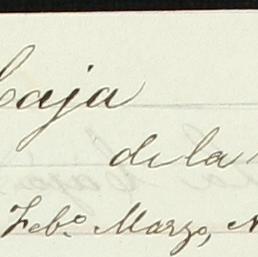 Caja
de la
Feb.º Marzo,